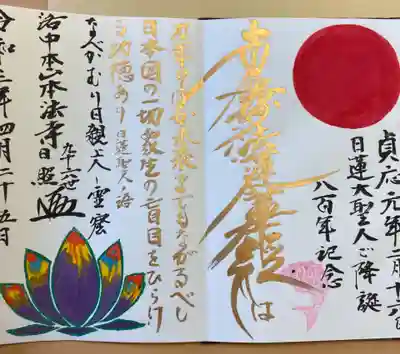 貞応元年二月十六日
日蓮大聖人ご降誕
八百年記念
南無妙法蓮華経は
万年のほか未来までもながるべし
日本国の一切衆生の盲目をひらける
功徳あり 日蓮聖人ノ語
なべかむり日親上人ノ霊窟
洛中本山本法寺 九十六世 日照
令和三年四月二十五日